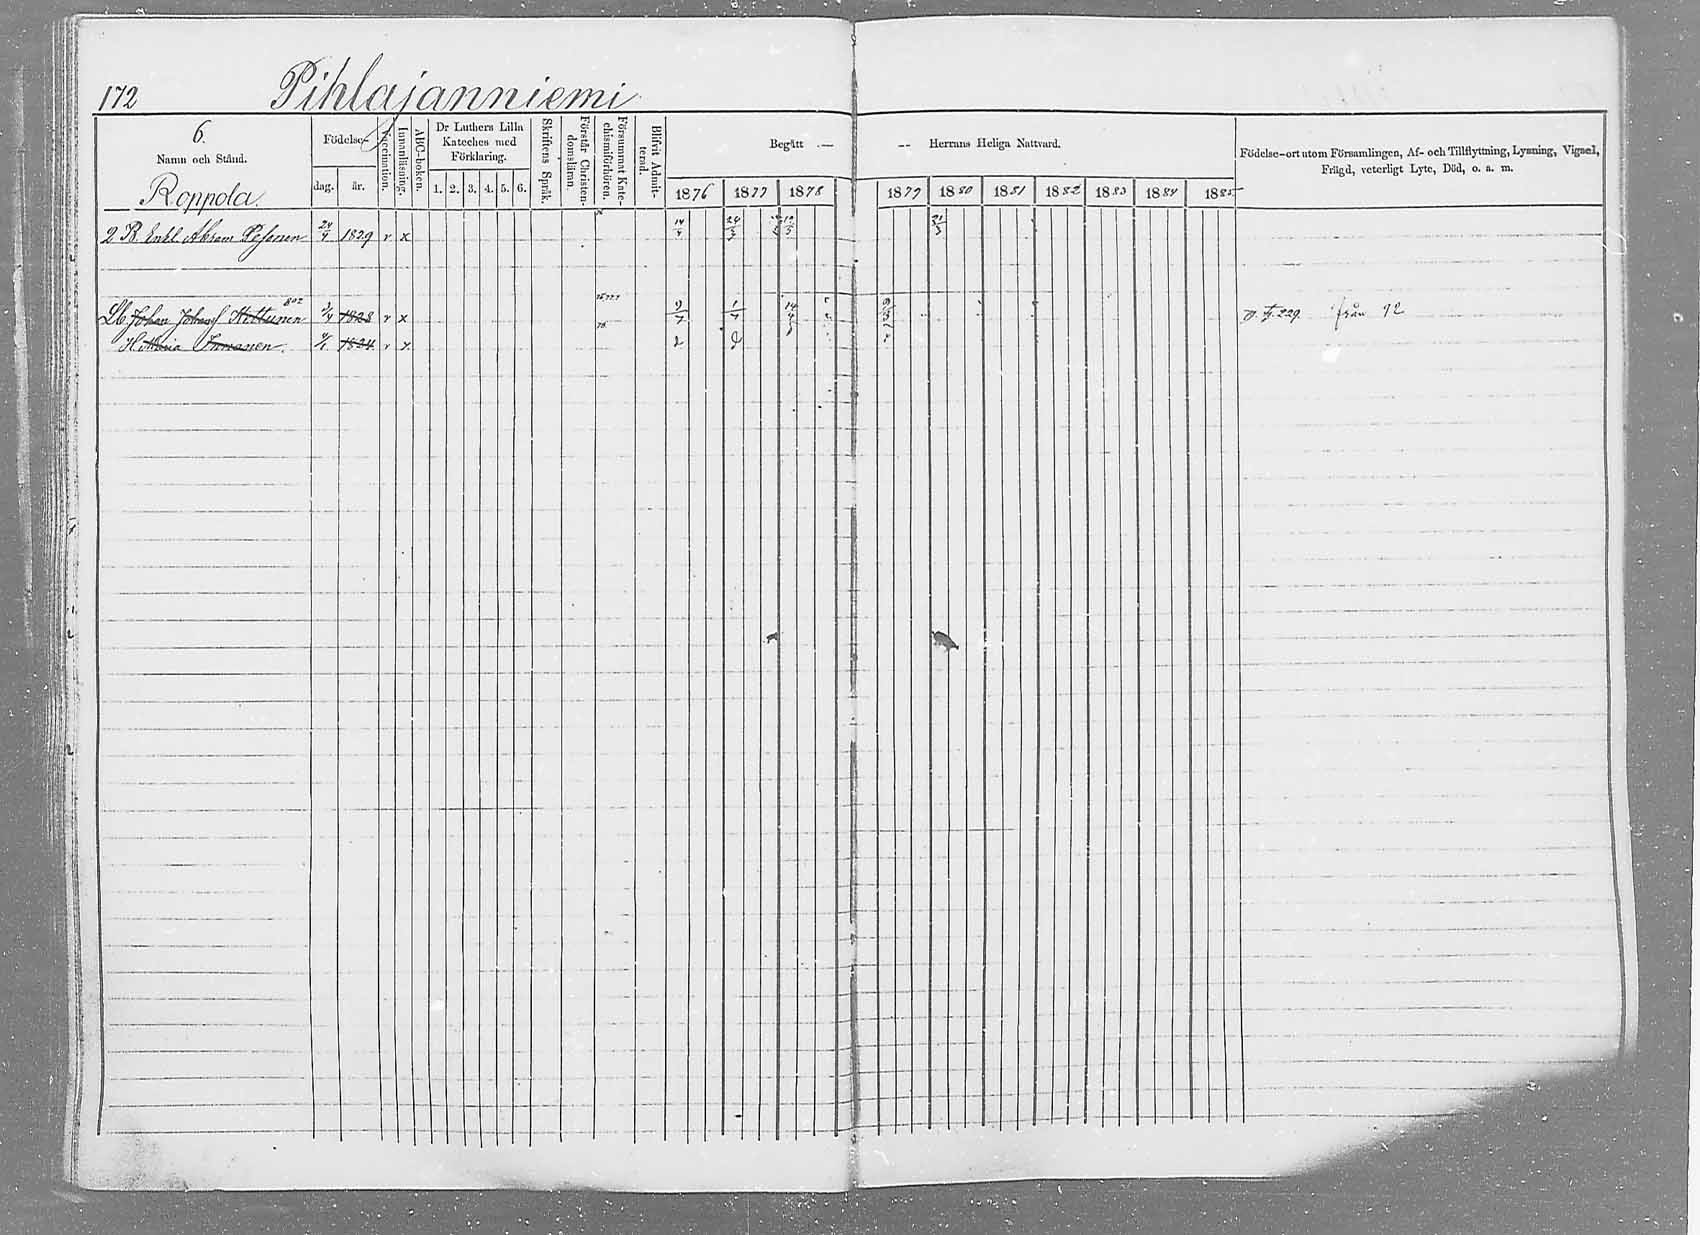 172 Pihlajanniemi
6.
Namn och Stånd.
Roppola.
Födelse-
dag. år.
Vaccination.
Innanläsning.
ABC-boken.
Dr Luthers Lilla
Kateches med
Förklaring.
1. 2. 3. 4. 5. 6.
Skriftens Språk.
Förstår Christen-
domslämn.
Försummat Kate-
chismiförhören.
Blifvit Admit-
terad.
Begått — -- Herrans Heliga Nattvard.
1876 1877 1878 1879 1880 1881 1882 1883 1884 1885
Födelse-ort utom Församlingen, Af- och Tillflyttning, Lysning, Vigsel,
Frägd, veterligt Lyte, Död, o. a. m.
2 B. Enkl. Abram Pesonen 24/4 1829 v x
802
Lb. Johan Johansf Hiltunen 1828 v x 229 från 92
H. Maria Immonen 1824 v x